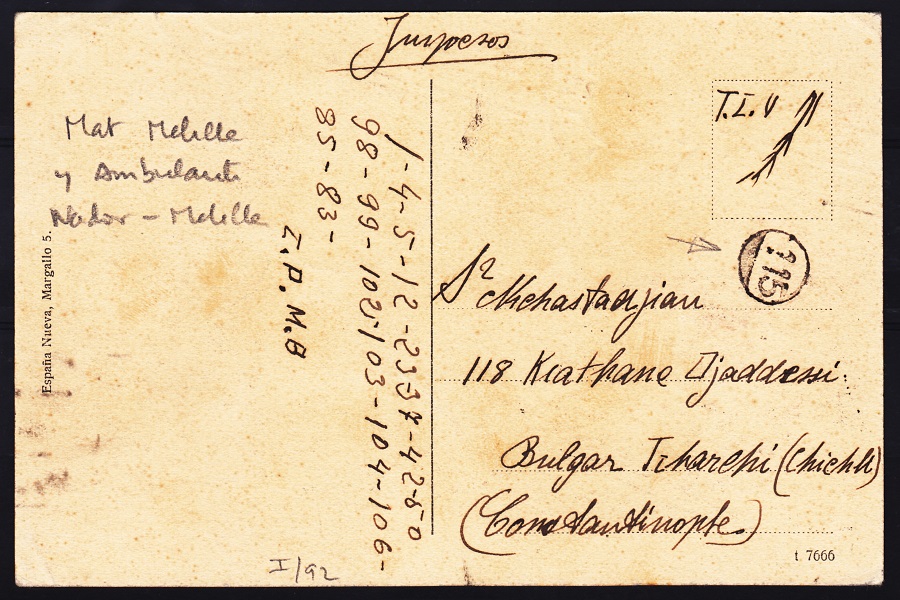 Impresos
Mat Melille
y Ambulante
Nador - Melille
España Nueva, Margallo 5.
1-4-5-12-23
98-99-102-103-104-106-
85-83-
I.P.M.B
T.I.V
115
Sr
118 Kiathane Djaddessi.
Bulgar Tcharchi (Chichli)
(Constantinople)
t. 7666
I/92